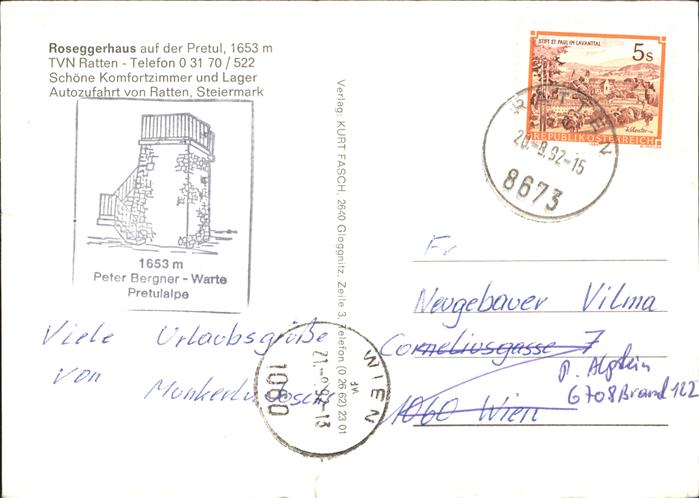 Roseggerhaus auf der Pretul, 1653 m
TVN Ratten - Telefon 0 31 70 / 522
Schöne Komfortzimmer und Lager
Autozufahrt von Ratten, Steiermark
1653 m
Peter Bergner - Warte
Pretulalpe
Viele Urlaubsgrüße
von
Verlag: KURT FASCH, 2640 Gloggnitz, Zeile 3, Telefon (0 26 62) 23 01
WIEN
21.-8.92-13
1060
STIFT ST. PAUL IM LAVANTTAL
5s
REPUBLIK ÖSTERREICH
RATTEN
20.-8.92-15
8673
Fr
Neugebauer Vilma
Corneliusgasse 7
p. Alpstein
6708 Brand 122
1060 Wien